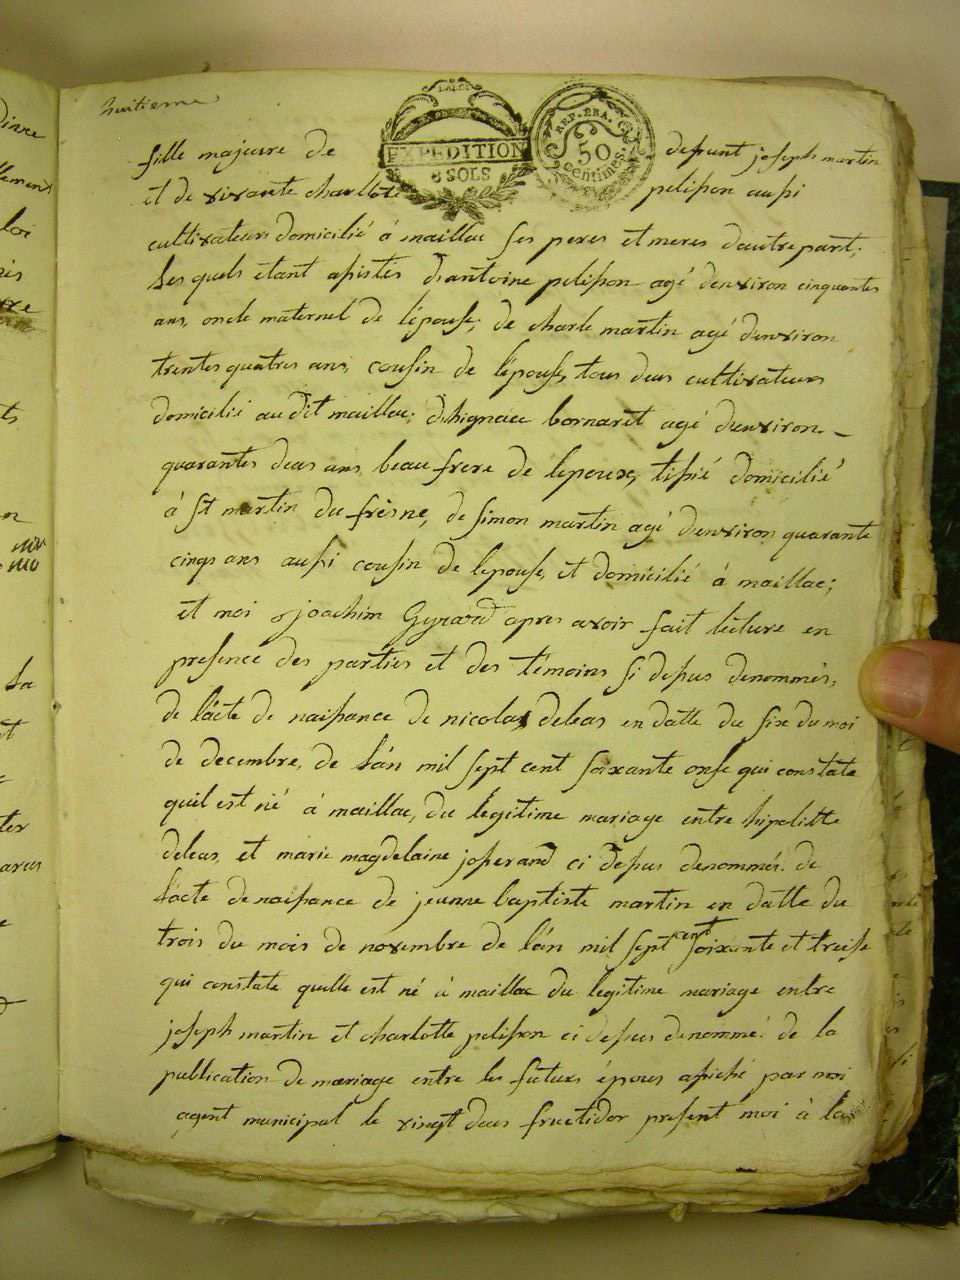 huitieme
EXPEDITION
8 SOLS
REP. FRA.
50
centimes.
fille majeure de defunt joseph martin
et de vivante charllote pelisson aussi
cultivateurs domicilié á maillac ses peres et meres dautre part;
Les quels étant assistés d'antoine pelisson agé d'environ cinquantes
ans, oncle maternel de lépouse; de charle martin agé d'environ
trentes quatres ans, cousin de lépouse, tous deus cultivateurs
domicilié au dit maillac; d'hignace bornaret agé d'environ
quarantes deus ans beau frere de lepoux, tissié domicilié
á st martin du frèsne, de simon martin agé d'environ quarante
cinqs ans aussi cousin de lepouse, et domicilié á maillac;
et moi joachim Gyrard apres avoir fait lécture en
presence des partiés et des témoins si dessus denommés,
de lácte de naissance de nicolas deleas en datte du six du moi
de decembre, de lán mil sept cent soixante onse qui constate
quil est né á maillac, du légitime mariage entre hipolitte
deleas, et marie magdelaine josserand ci dessus denommés. de
lácte de naissance de jeanne baptiste martin en datte du
trois du mois de novembre de lán mil sept cent soixante et treise
qui constate quelle est né á maillac du legitime mariage entre
joseph martin et charlotte pelisson ci dessus denommé. de la
publication de mariage entre les futurs épous afiché par moi
agent municipal le vingt deus fructidor present moi á la